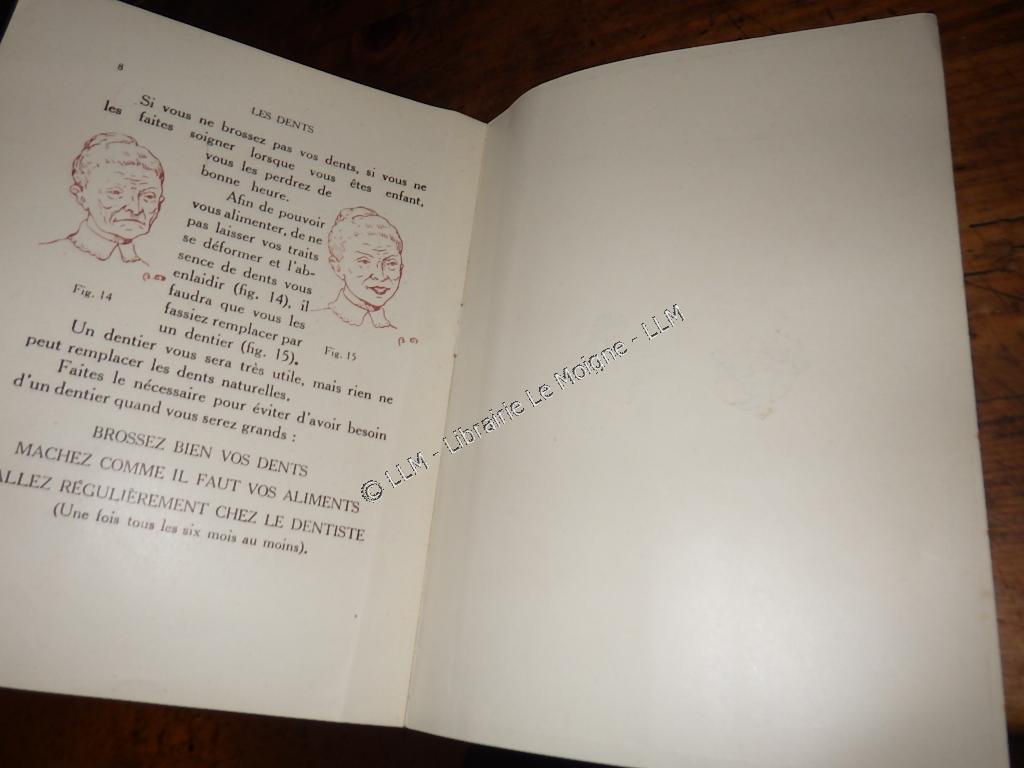 8
LES DENTS
Si vous ne brossez pas vos dents, si vous ne
les faites soigner lorsque vous êtes enfant,
vous les perdrez de
bonne heure.
Afin de pouvoir
vous alimenter, de ne
pas laisser vos traits
se déformer et l'ab-
sence de dents vous
enlaidir (fig. 14), il
faudra que vous les
fassiez remplacer par
un dentier (fig. 15).
Fig. 14
Fig. 15
Un dentier vous sera très utile, mais rien ne
peut remplacer les dents naturelles.
Faites le nécessaire pour éviter d'avoir besoin
d'un dentier quand vous serez grands :
BROSSEZ BIEN VOS DENTS
MACHEZ COMME IL FAUT VOS ALIMENTS
ALLEZ RÉGULIÈREMENT CHEZ LE DENTISTE
(Une fois tous les six mois au moins).
© LLM - Librairie Le Moigne - LLM